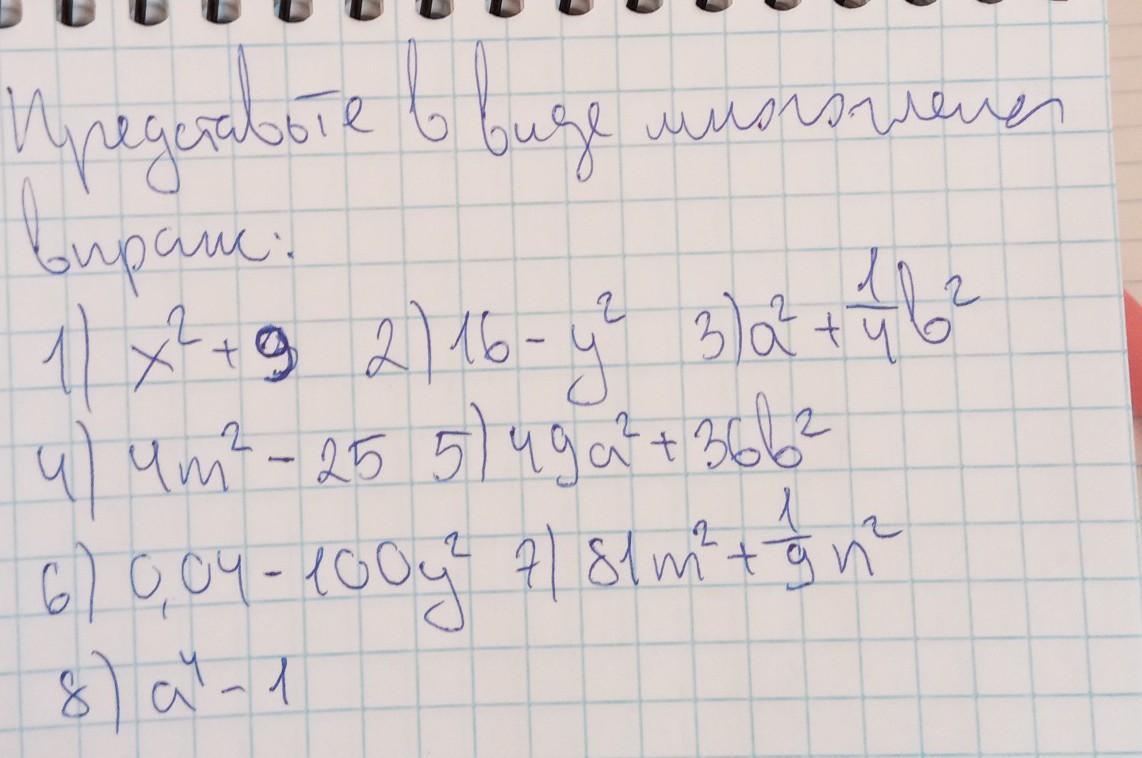 Представьте в виде многочлена
выраж:
1) x² + 9 2) 16 - y² 3) a² + 1/4 b²
4) 4m² - 25 5) 49a² + 36b²
6) 0,04 - 100y² 7) 81m² + 1/9 n²
8) a⁴ - 1